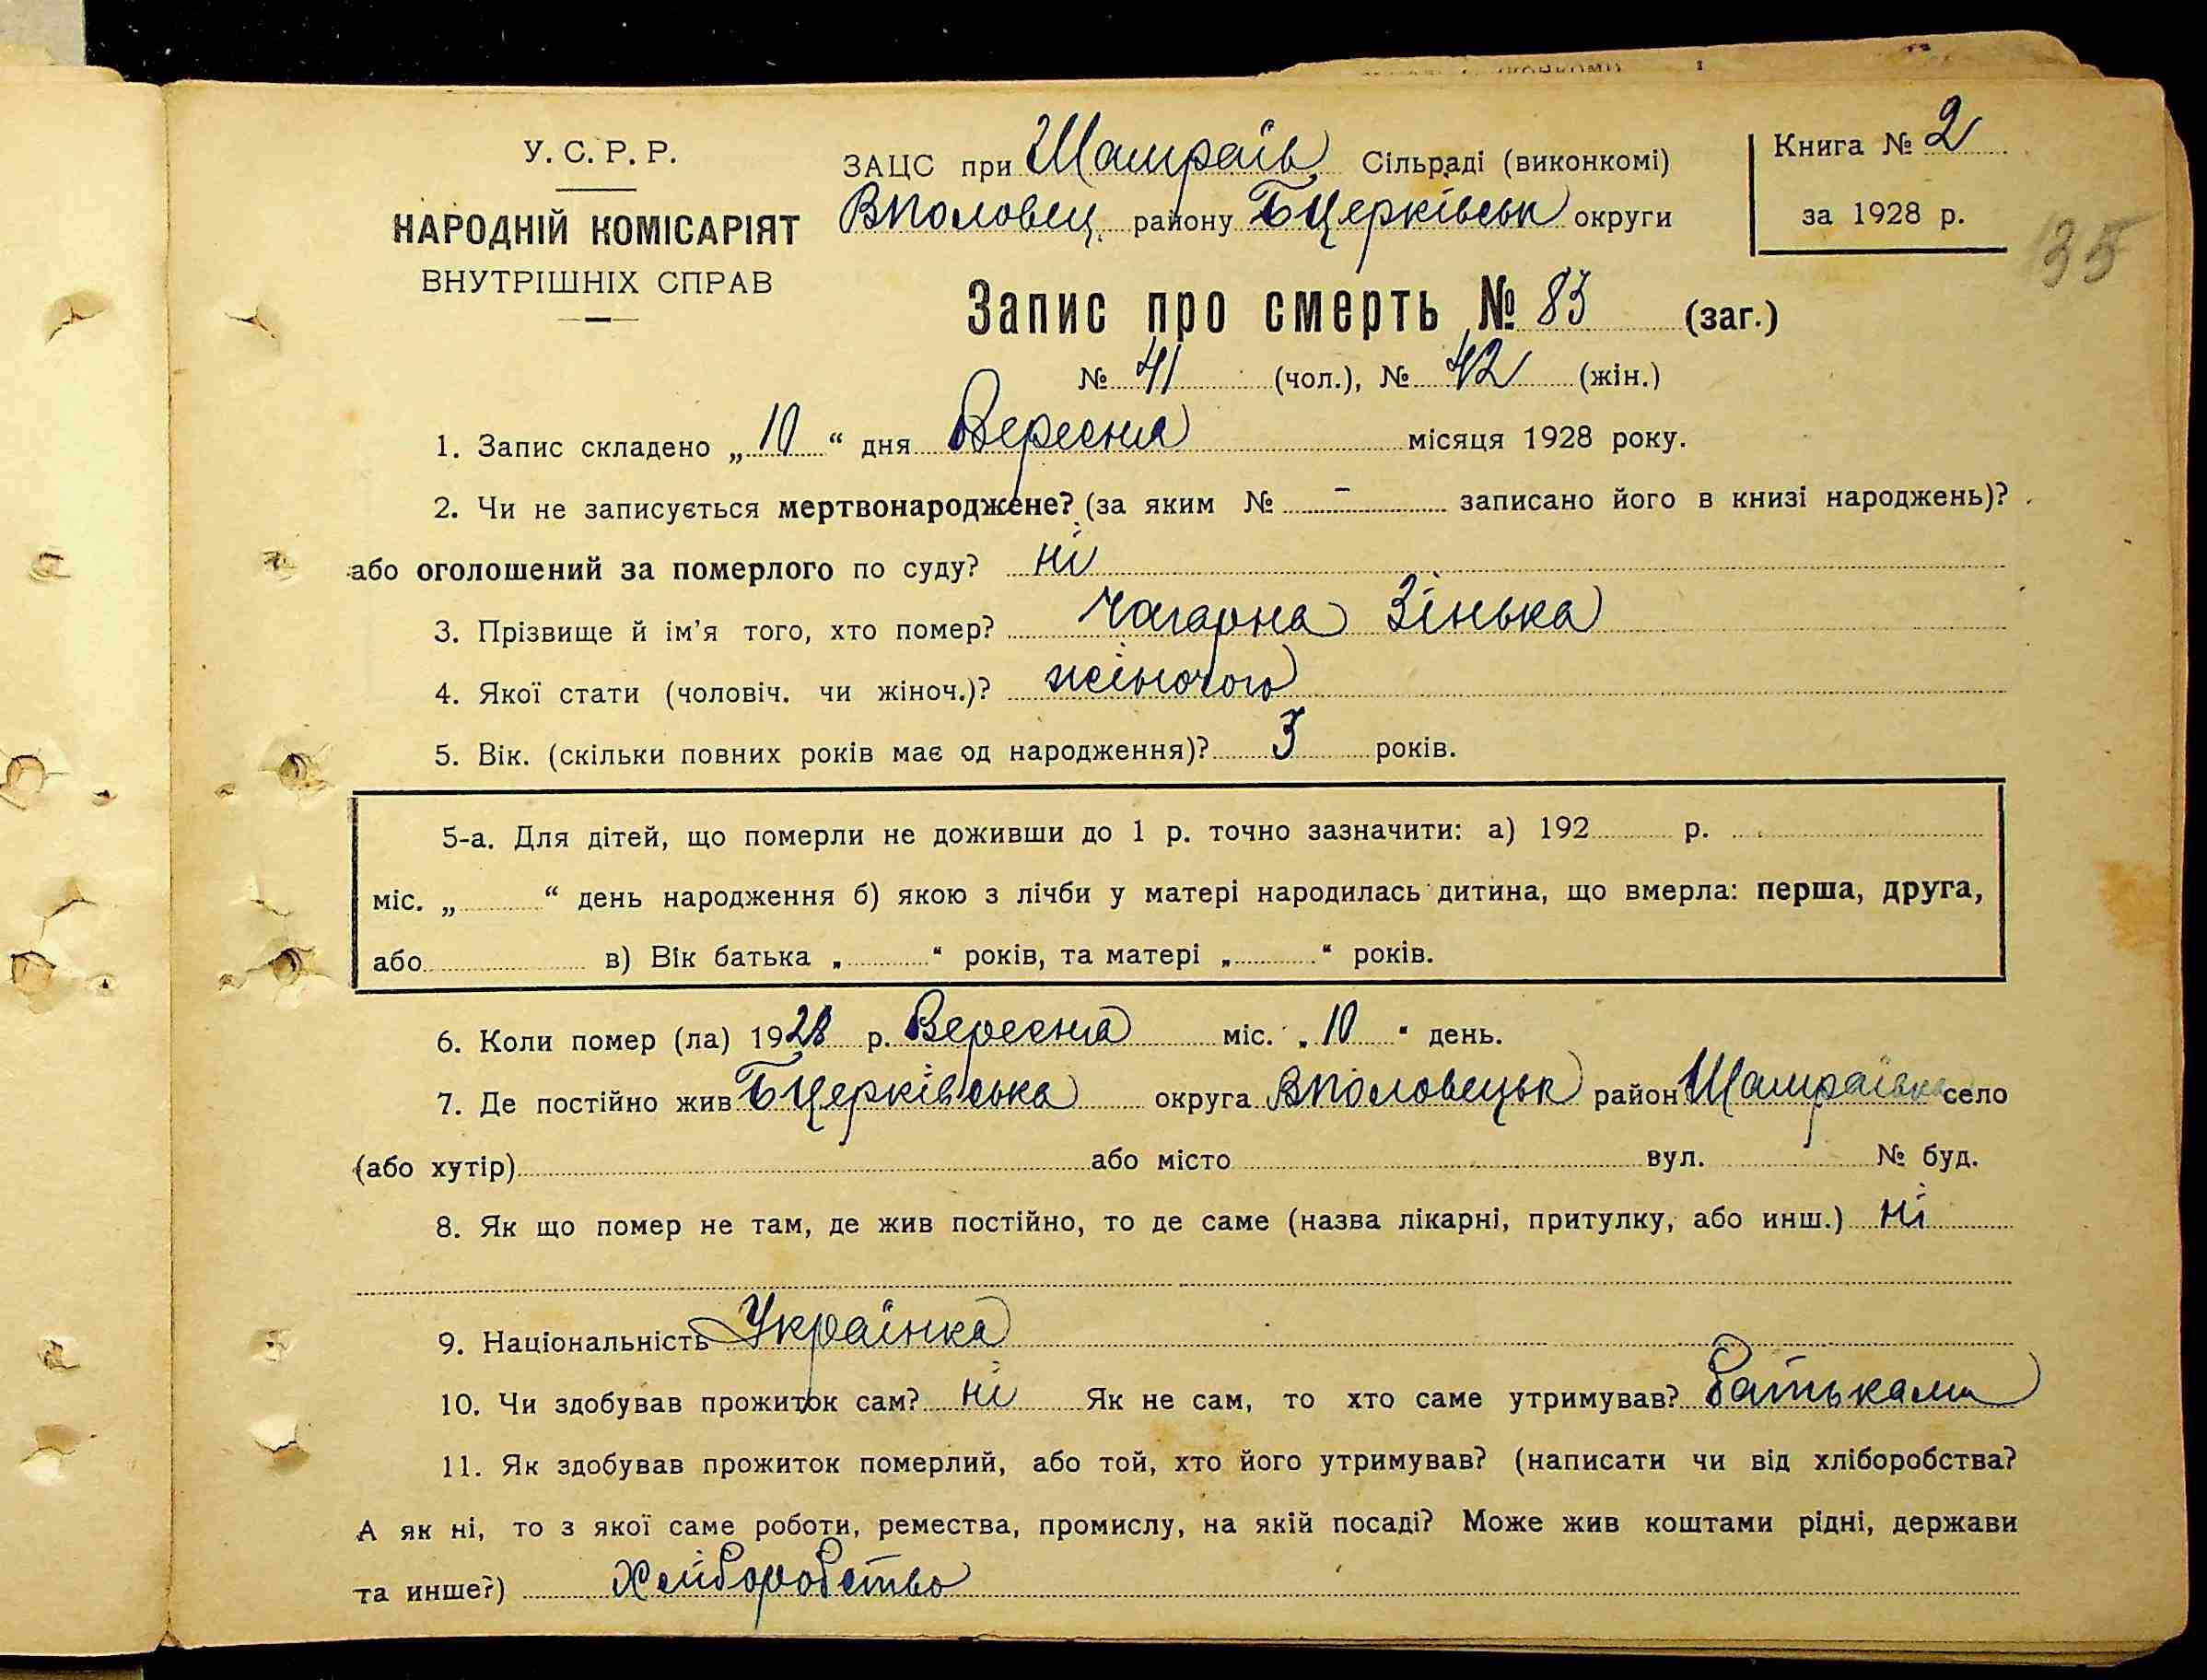 У. С. Р. Р.
НАРОДНІЙ КОМІСАРІЯТ
ВНУТРІШНІХ СПРАВ
ЗАЦС при Шамраїв Сільраді (виконкомі)
Вполовец. району БЦерківськ округи
Книга № 2
за 1928 р.
35
Запис про смерть № 83 (заг.)
№ 41 (чол.), № 42 (жін.)
1. Запис складено „10“ дня Вересня місяця 1928 року.
2. Чи не записується мертвонароджене? (за яким № – записано його в книзі народжень)?
або оголошений за померлого по суду? ні
3. Прізвище й ім'я того, хто помер? Чагарна Зінька
4. Якої стати (чоловіч. чи жіноч.)? жіночого
5. Вік. (скільки повних років має од народження)? 3 років.
5-а. Для дітей, що померли не доживши до 1 р. точно зазначити: а) 192 р.
міс. „ “ день народження б) якою з лічби у матері народилась дитина, що вмерла: перша, друга,
або в) Вік батька „ “ років, та матері „ “ років.
6. Коли помер (ла) 1928 р. Вересня міс. „10“ день.
7. Де постійно жив БЦерківська округа Вполовецьк район Шамраївка село
(або хутір) або місто вул. № буд.
8. Як що помер не там, де жив постійно, то де саме (назва лікарні, притулку, або инш.) ні
9. Національність Українка
10. Чи здобував прожиток сам? ні Як не сам, то хто саме утримував? Батьками
11. Як здобував прожиток померлий, або той, хто його утримував? (написати чи від хліборобства?
А як ні, то з якої саме роботи, ремества, промислу, на якій посаді? Може жив коштами рідні, держави
та инше?) Хліборобство